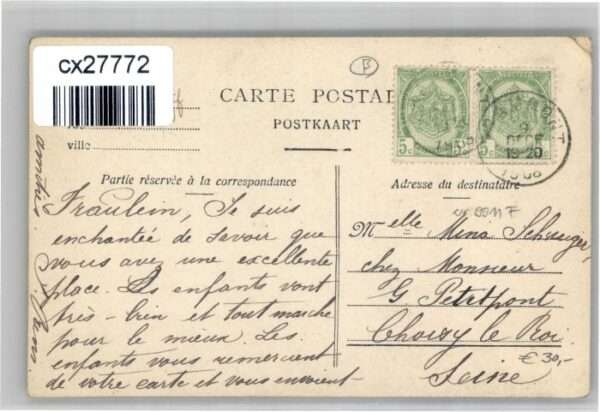 cx27772
B
CARTE POSTA
POSTKAART
ville
5c 5c
9
DECE
19-20
1908
Partie réservée à la correspondance
Adresse du destinataire
Fraülein, Je suis
enchantée de savoir que
vous avez une excellente
place. Les enfants vont
très-bien et tout marche
pour le mieux. Les
enfants vous remercient
de votre carte et vous envoient
amitiés
Melle Mina
chez Monsieur
G. Petitpont
Choisy le Roi
Seine
€ 30,-